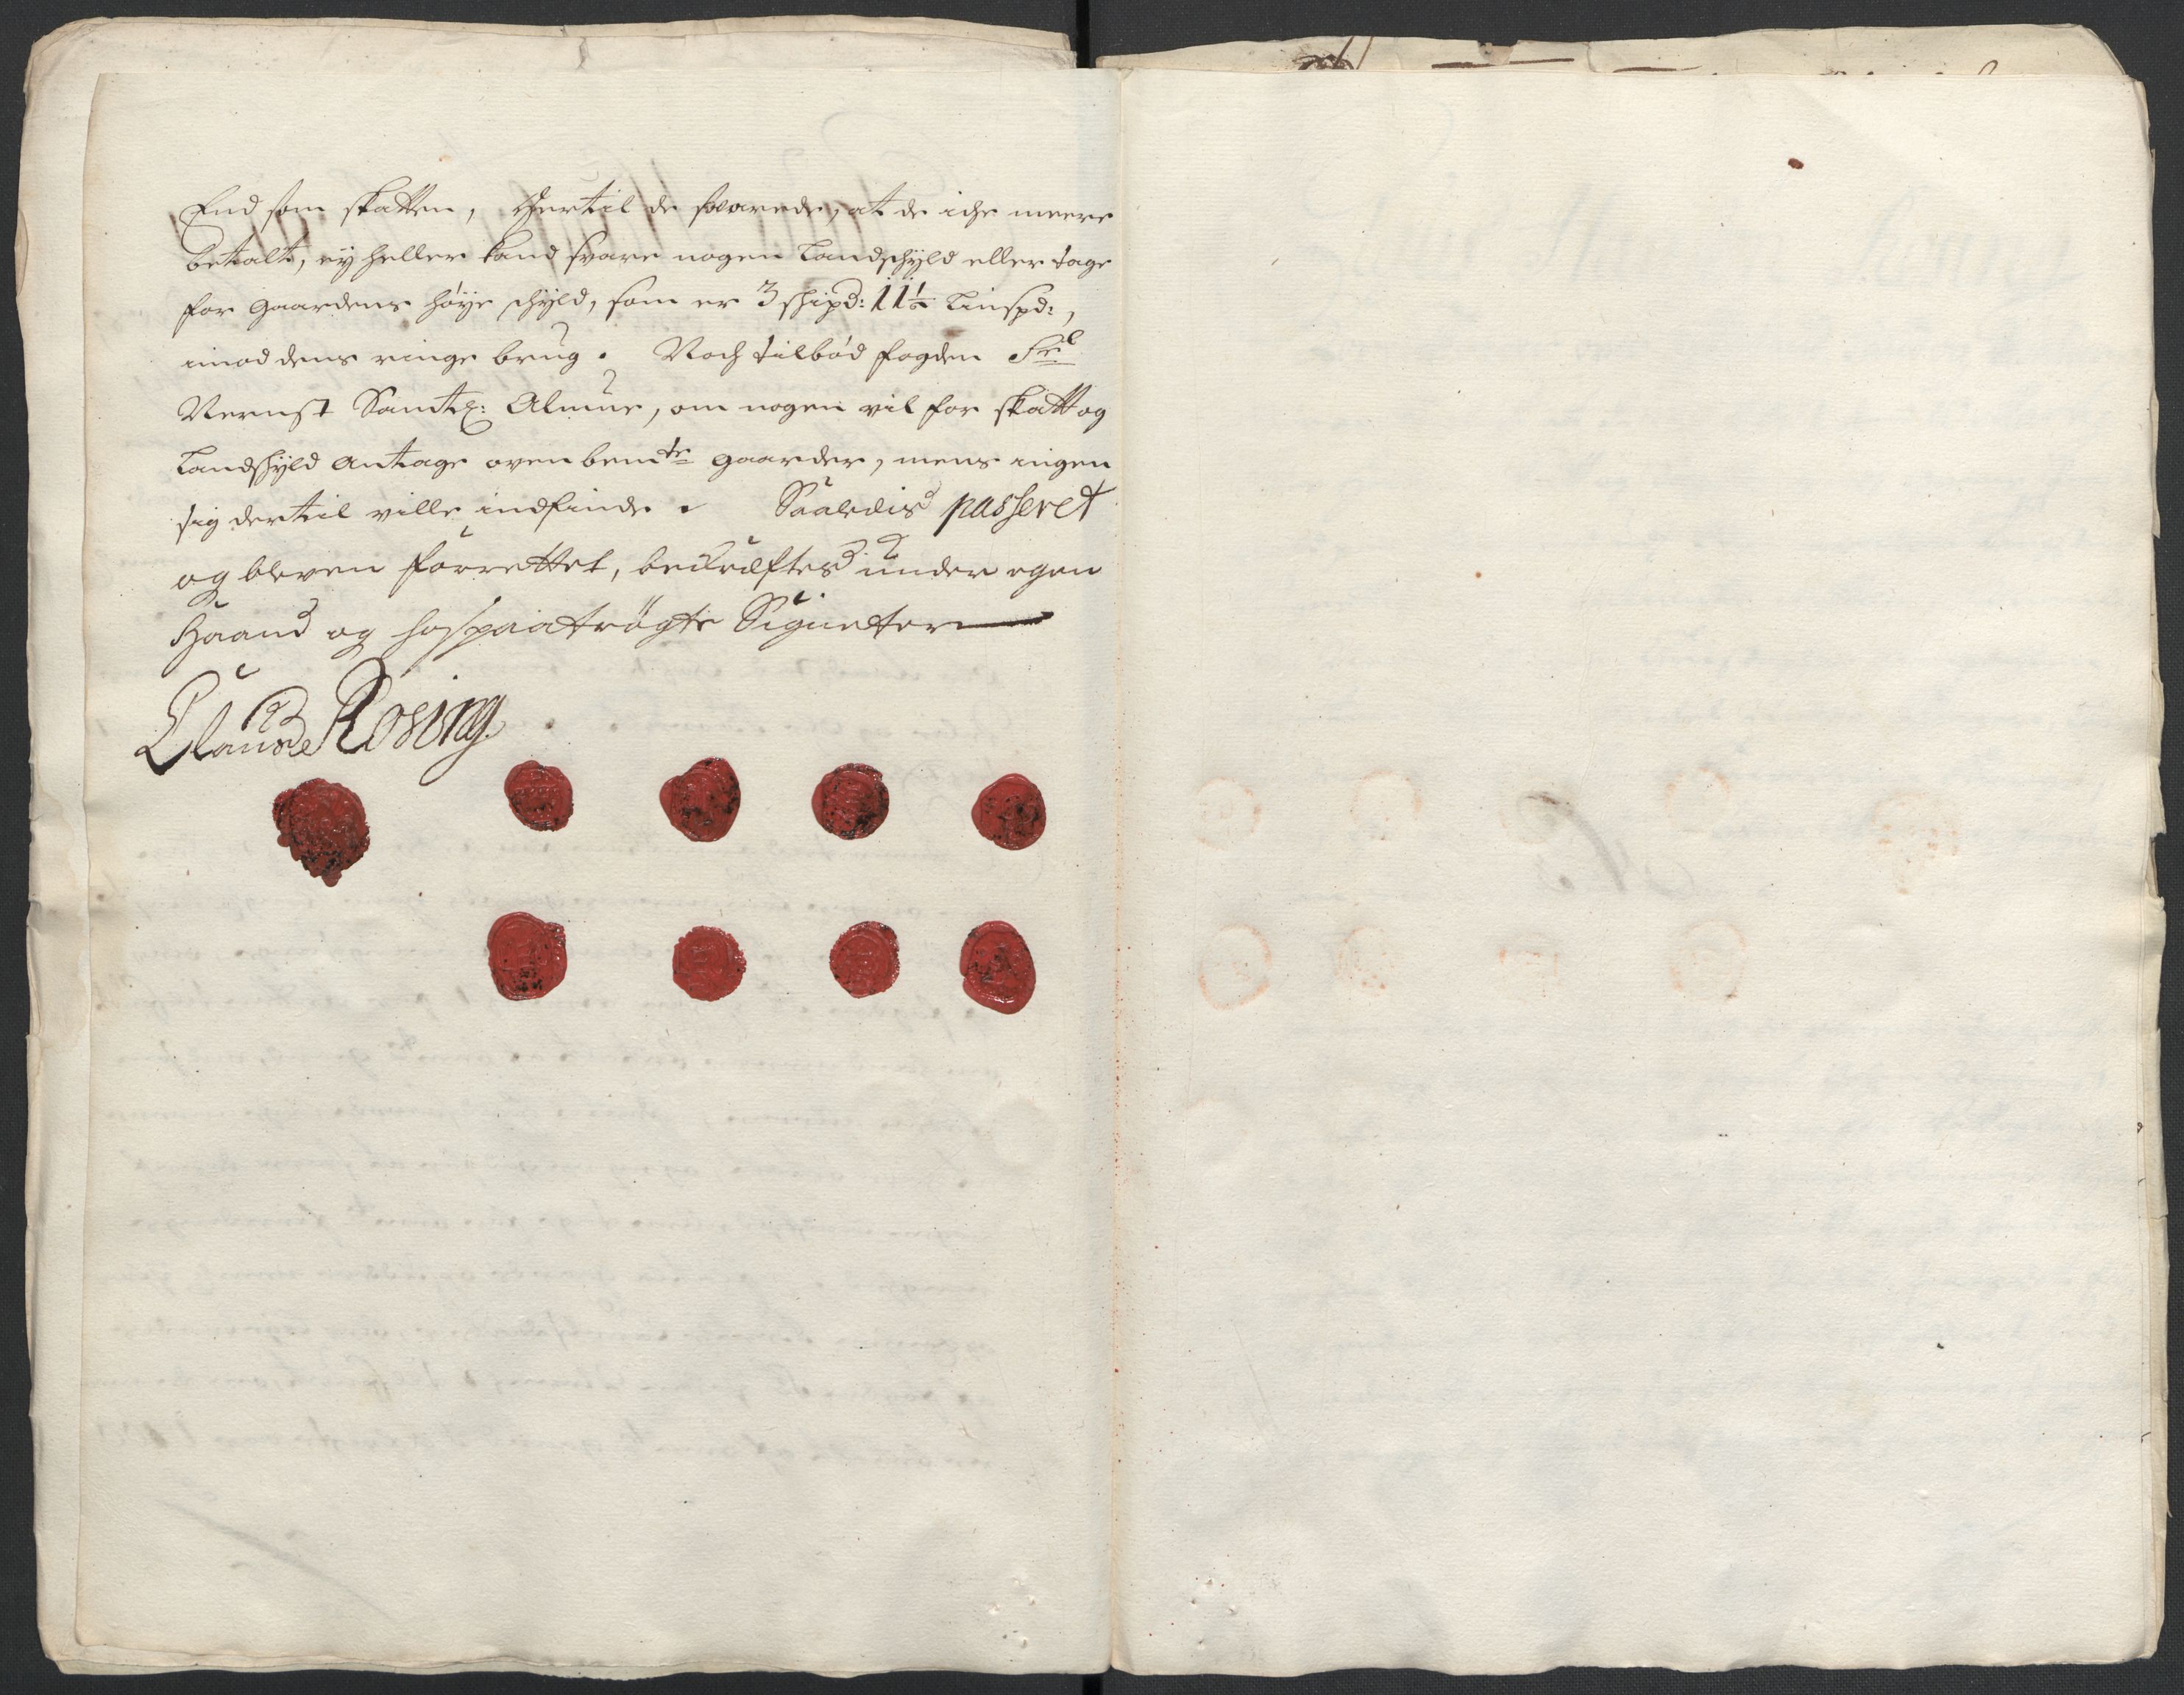 End som skatten, Hertil de svarede, at de iche meere
betalt, ey heller kand svare nogen Landschyld eller tage
for gaardens høye schyld, som er 3 shipd: 11½ Linspd:,
imod dens ringe brug. Noch tilbød fogden Sr
Nernst Samtl: Almue, om nogen vil for skatt og
Landschyld antage ovenbemte gaarder, mens ingen
sig dertil ville indfinde. Saaledis passeret
og bleven forrettet, becræftes under egen
Haand og hospaatrøgte Signeter
Clausde Rosing